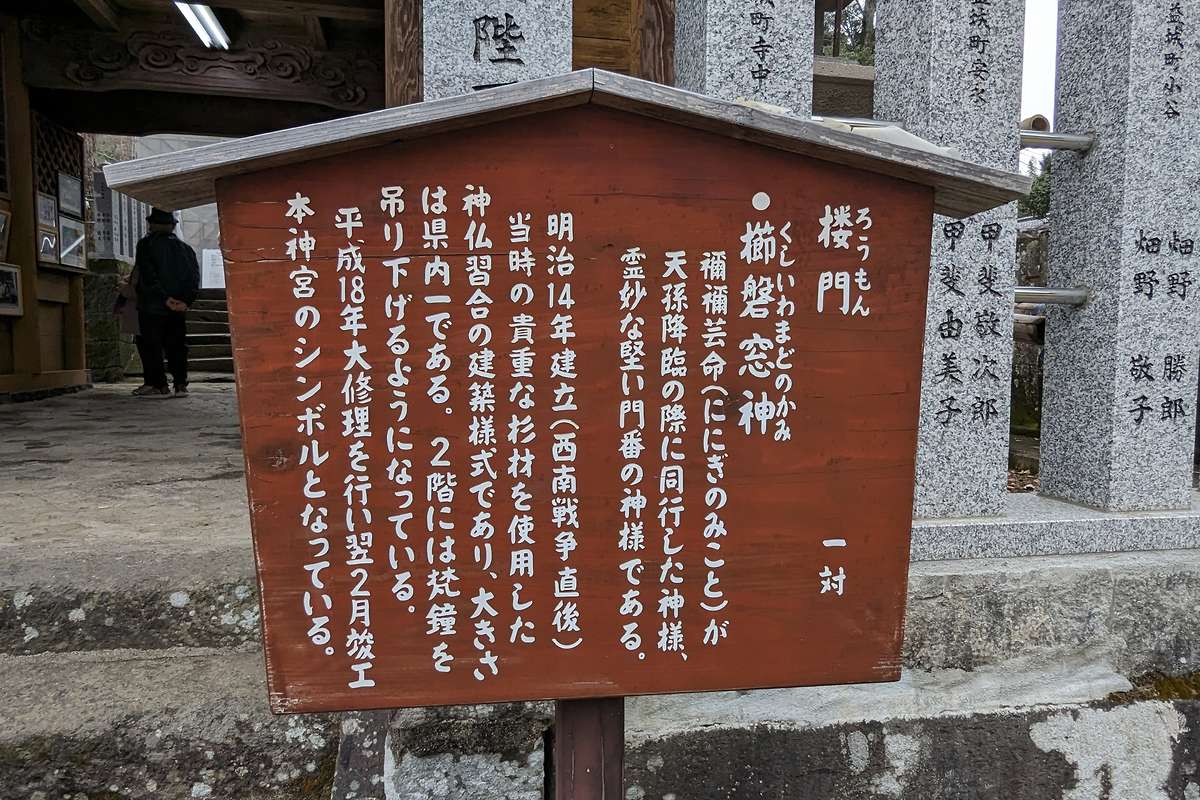 楼門
ろうもん
一対
●櫛磐窓神
くしいわまどのかみ
禰禰芸命(ににぎのみこと)が
天孫降臨の際に同行した神様、
霊妙な堅い門番の神様である。
明治14年建立(西南戦争直後)
当時の貴重な杉材を使用した
神仏習合の建築様式であり、大きさ
は県内一である。2階には梵鐘を
吊り下げるようになっている。
平成18年大修理を行い翌2月竣工
本神宮のシンボルとなっている。
益城町小谷
畑野 勝郎
畑野 敬子
益城町安永
甲斐敬次郎
甲斐由美子
町寺中
陛